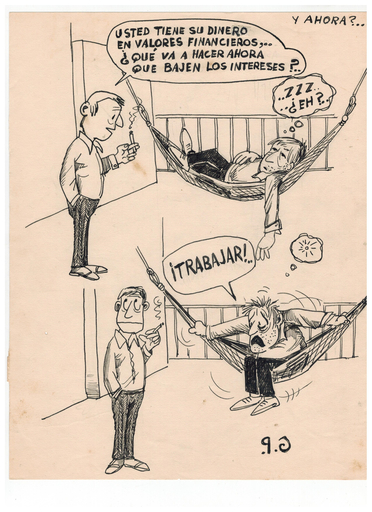 Y AHORA?...
USTED TIENE SU DINERO
EN VALORES FINANCIEROS,...
¿QUÉ VA A HACER AHORA
QUE BAJEN LOS INTERESES?..
..ZZZ..
..¿EH?..
¡TRABAJAR!..